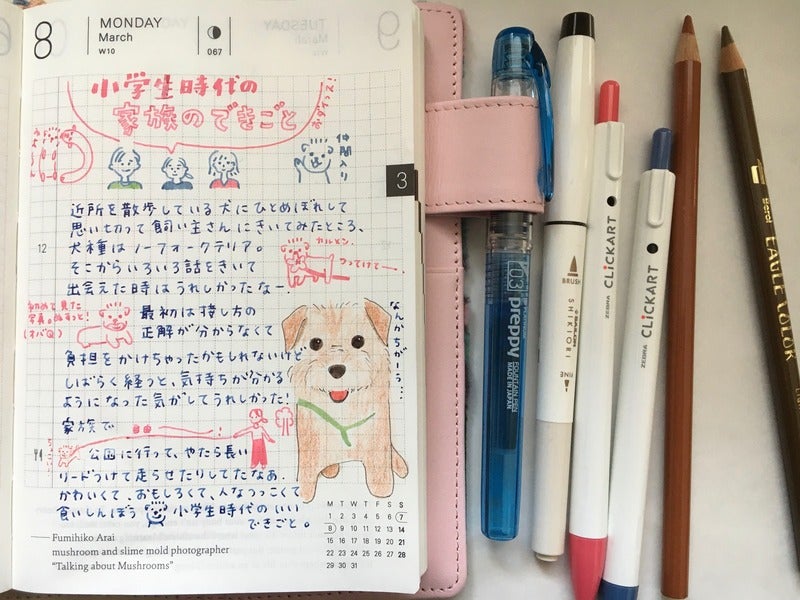 8
MONDAY
March
W10
067
TUESDAY
9
小学生時代の
家族のできごと
おダイスン!
仲間入り
3
近所を散歩している犬にひとめぼれして
思い切って飼い主さんにきいてみたところ、
犬種はノーフォークテリア。
そこからいろいろ話をきいて
出会えた時はうれしかったなー。
12
カルメン、
つってけてー。
初めて見た
最初は接し方の
正解が分からなくて
負担をかけちゃったかもしれないけど
しばらく経つと、気持ちが分かる
ようになった気がしてうれしかった!
なんかちがーう...
家族で
自由
公園に行って、やたら長い
リードつけて走らせたりしてたなあ。
かわいくて、おもしろくて、人なつっこくて
食いしんぼう 小学生時代のいい
できごと。
M T W T F S S
1 2 3 4 5 6 7
8 9 10 11 12 13 14
15 16 17 18 19 20 21
22 23 24 25 26 27 28
29 30 31
Fumihiko Arai
mushroom and slime mold photographer
"Talking about Mushrooms"
03
preppy
FOUNTAIN PEN
MADE IN JAPAN
BRUSH
SHIKIORI
FINE
ZEBRA CLiCKART
ZEBRA CLiCKART